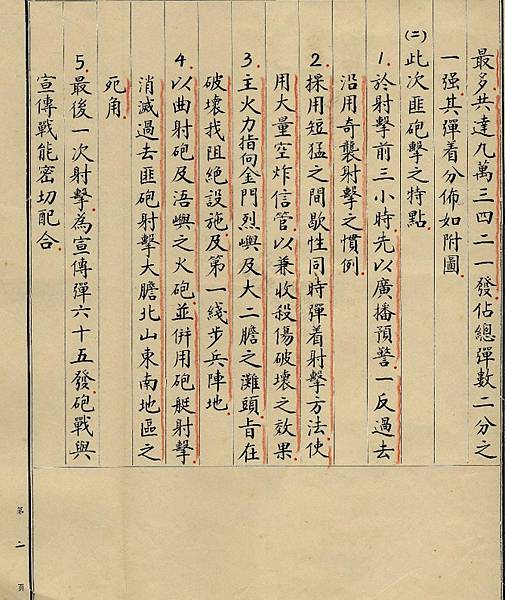 最多共達九萬三四二一發佔總彈數二分之
一强其彈着分佈如附圖
㈡此次匪砲擊之特點
1.於射擊前三小時先以廣播預警一反過去
沿用奇襲射擊之慣例
2.採用短猛之間歇性同時彈着射擊方法使
用大量空炸信管以兼收殺傷破壞之效果
3.主火力指向金門烈嶼及大二膽之灘頭旨在
破壞我阻絕設施及第一綫步兵陣地
4.以曲射砲及浯嶼之火砲並併用砲艇射擊
消滅過去匪砲射擊大膽北山東南地區之
死角
5.最後一次射擊為宣傳彈六十五發砲戰與
宣傳戰能密切配合
第二頁